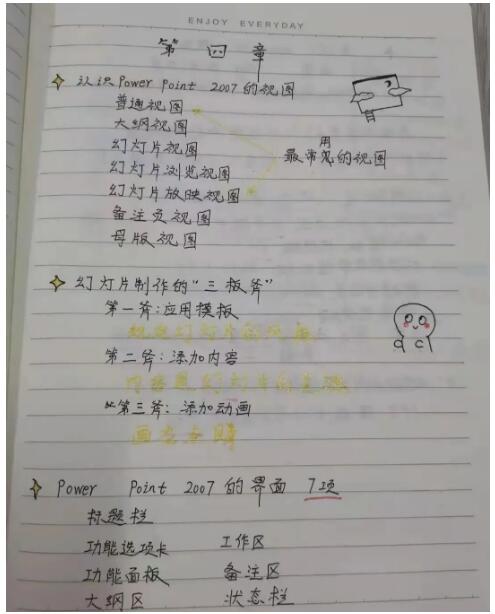 ENJOY EVERYDAY
第四章
认识Power Point 2007的视图
普通视图
大纲视图
幻灯片视图
用
最常见的视图
幻灯片浏览视图
幻灯片放映视图
备注页视图
母版视图
幻灯片制作的“三板斧”
第一斧:应用模板
规定幻灯片的风格
第二斧:添加内容
内容是幻灯片的基础
第三斧:添加动画
画龙点睛
Power Point 2007的界面 7项
标题栏
功能选项卡 工作区
功能面板 备注区
大纲区 状态栏